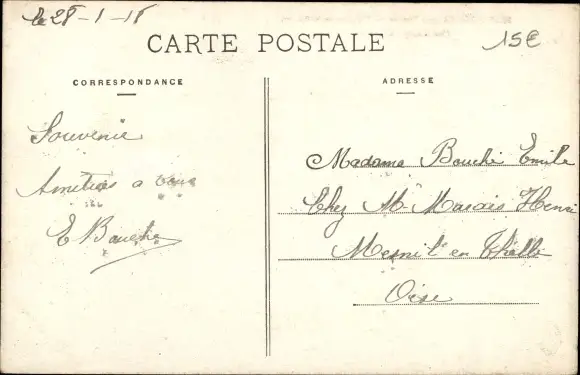 le 28-1-18
CARTE POSTALE
15€
CORRESPONDANCE
ADRESSE
Souvenir
Amitiés a vous
E Bouché
Madame Bouché Emile
Chez Mr Marais Henri
Mesnil en Thelle
Oise